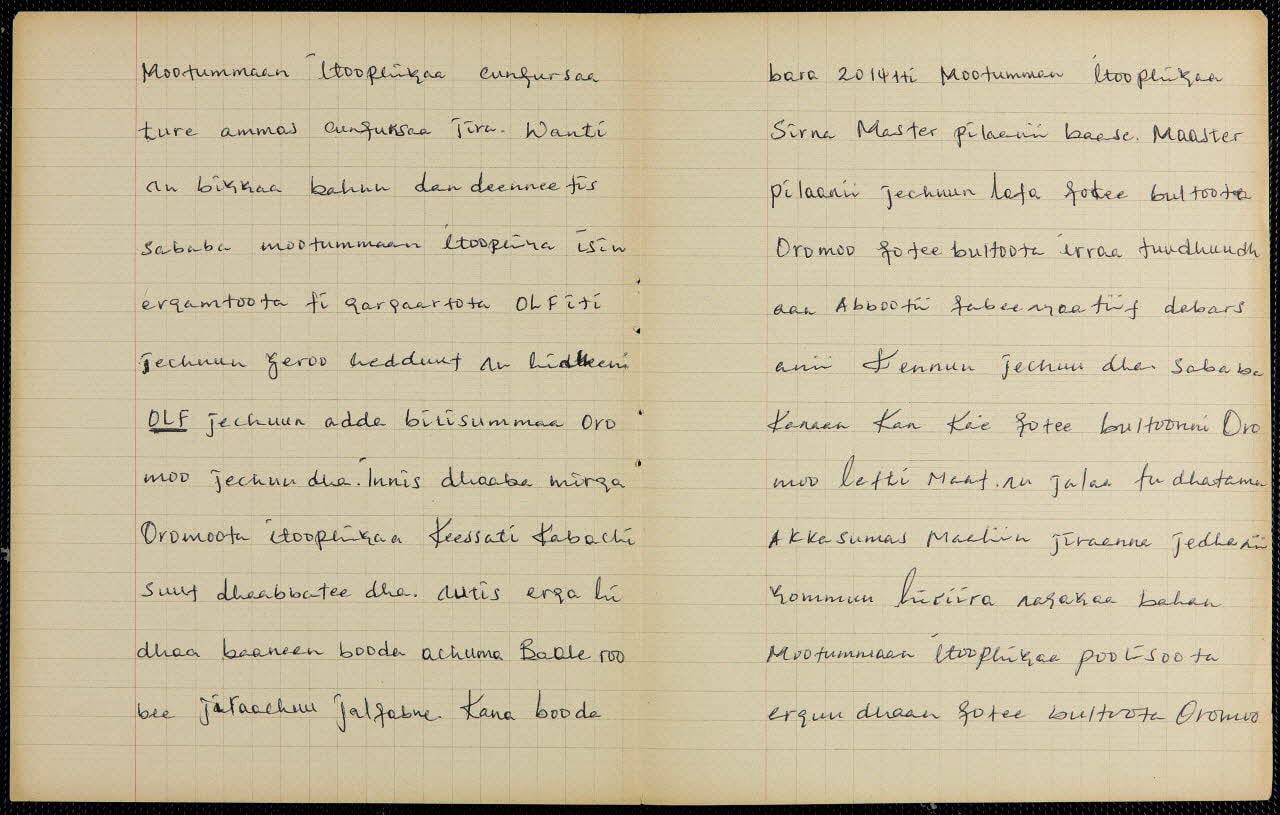 Mootummaan Itoophiyaa cunqursaa
ture ammas cunquksaa jira. Wanti
nu bikkaa bahuu dandeenneefis
sababa mootummaan Itoophiya isin
ergamtoota fi gargaartota OLFiti
jechuun yeroo hedduuf nu hidheeni
OLF jechuun adda bilisummaa Oro
moo jechuu dha. Innis dhaaba mirga
Oromoota itoophiyaa Keessati Kabachi
suuf dhaabbatee dha. nutis erga hi
dhaa baaneen booda achuma Baale roo
bee jiraachuu jalqabne. Kana booda
bara 2014tti Mootumman Itoophiyaa
Sirna Master pilaanii baase. Maaster
pilaanii jechuun lafa qotee bultoota
Oromoo qotee bultoota irraa fuudhuudh
aan Abbootii qabeenyaatiif dabars
anii Kennuu jechuu dha. Sababa
Kanaan Kan Ka'e qotee bultoonni Oro
moo lafti Maaf nu jalaa fudhatama
AKKasumas Maaliin jiraanna jedhanii
yommuu hiriira nagayaa bahan
Mootummaan Itoophiyaa poolisoota
erguudhaan qotee bultoota Oromoo